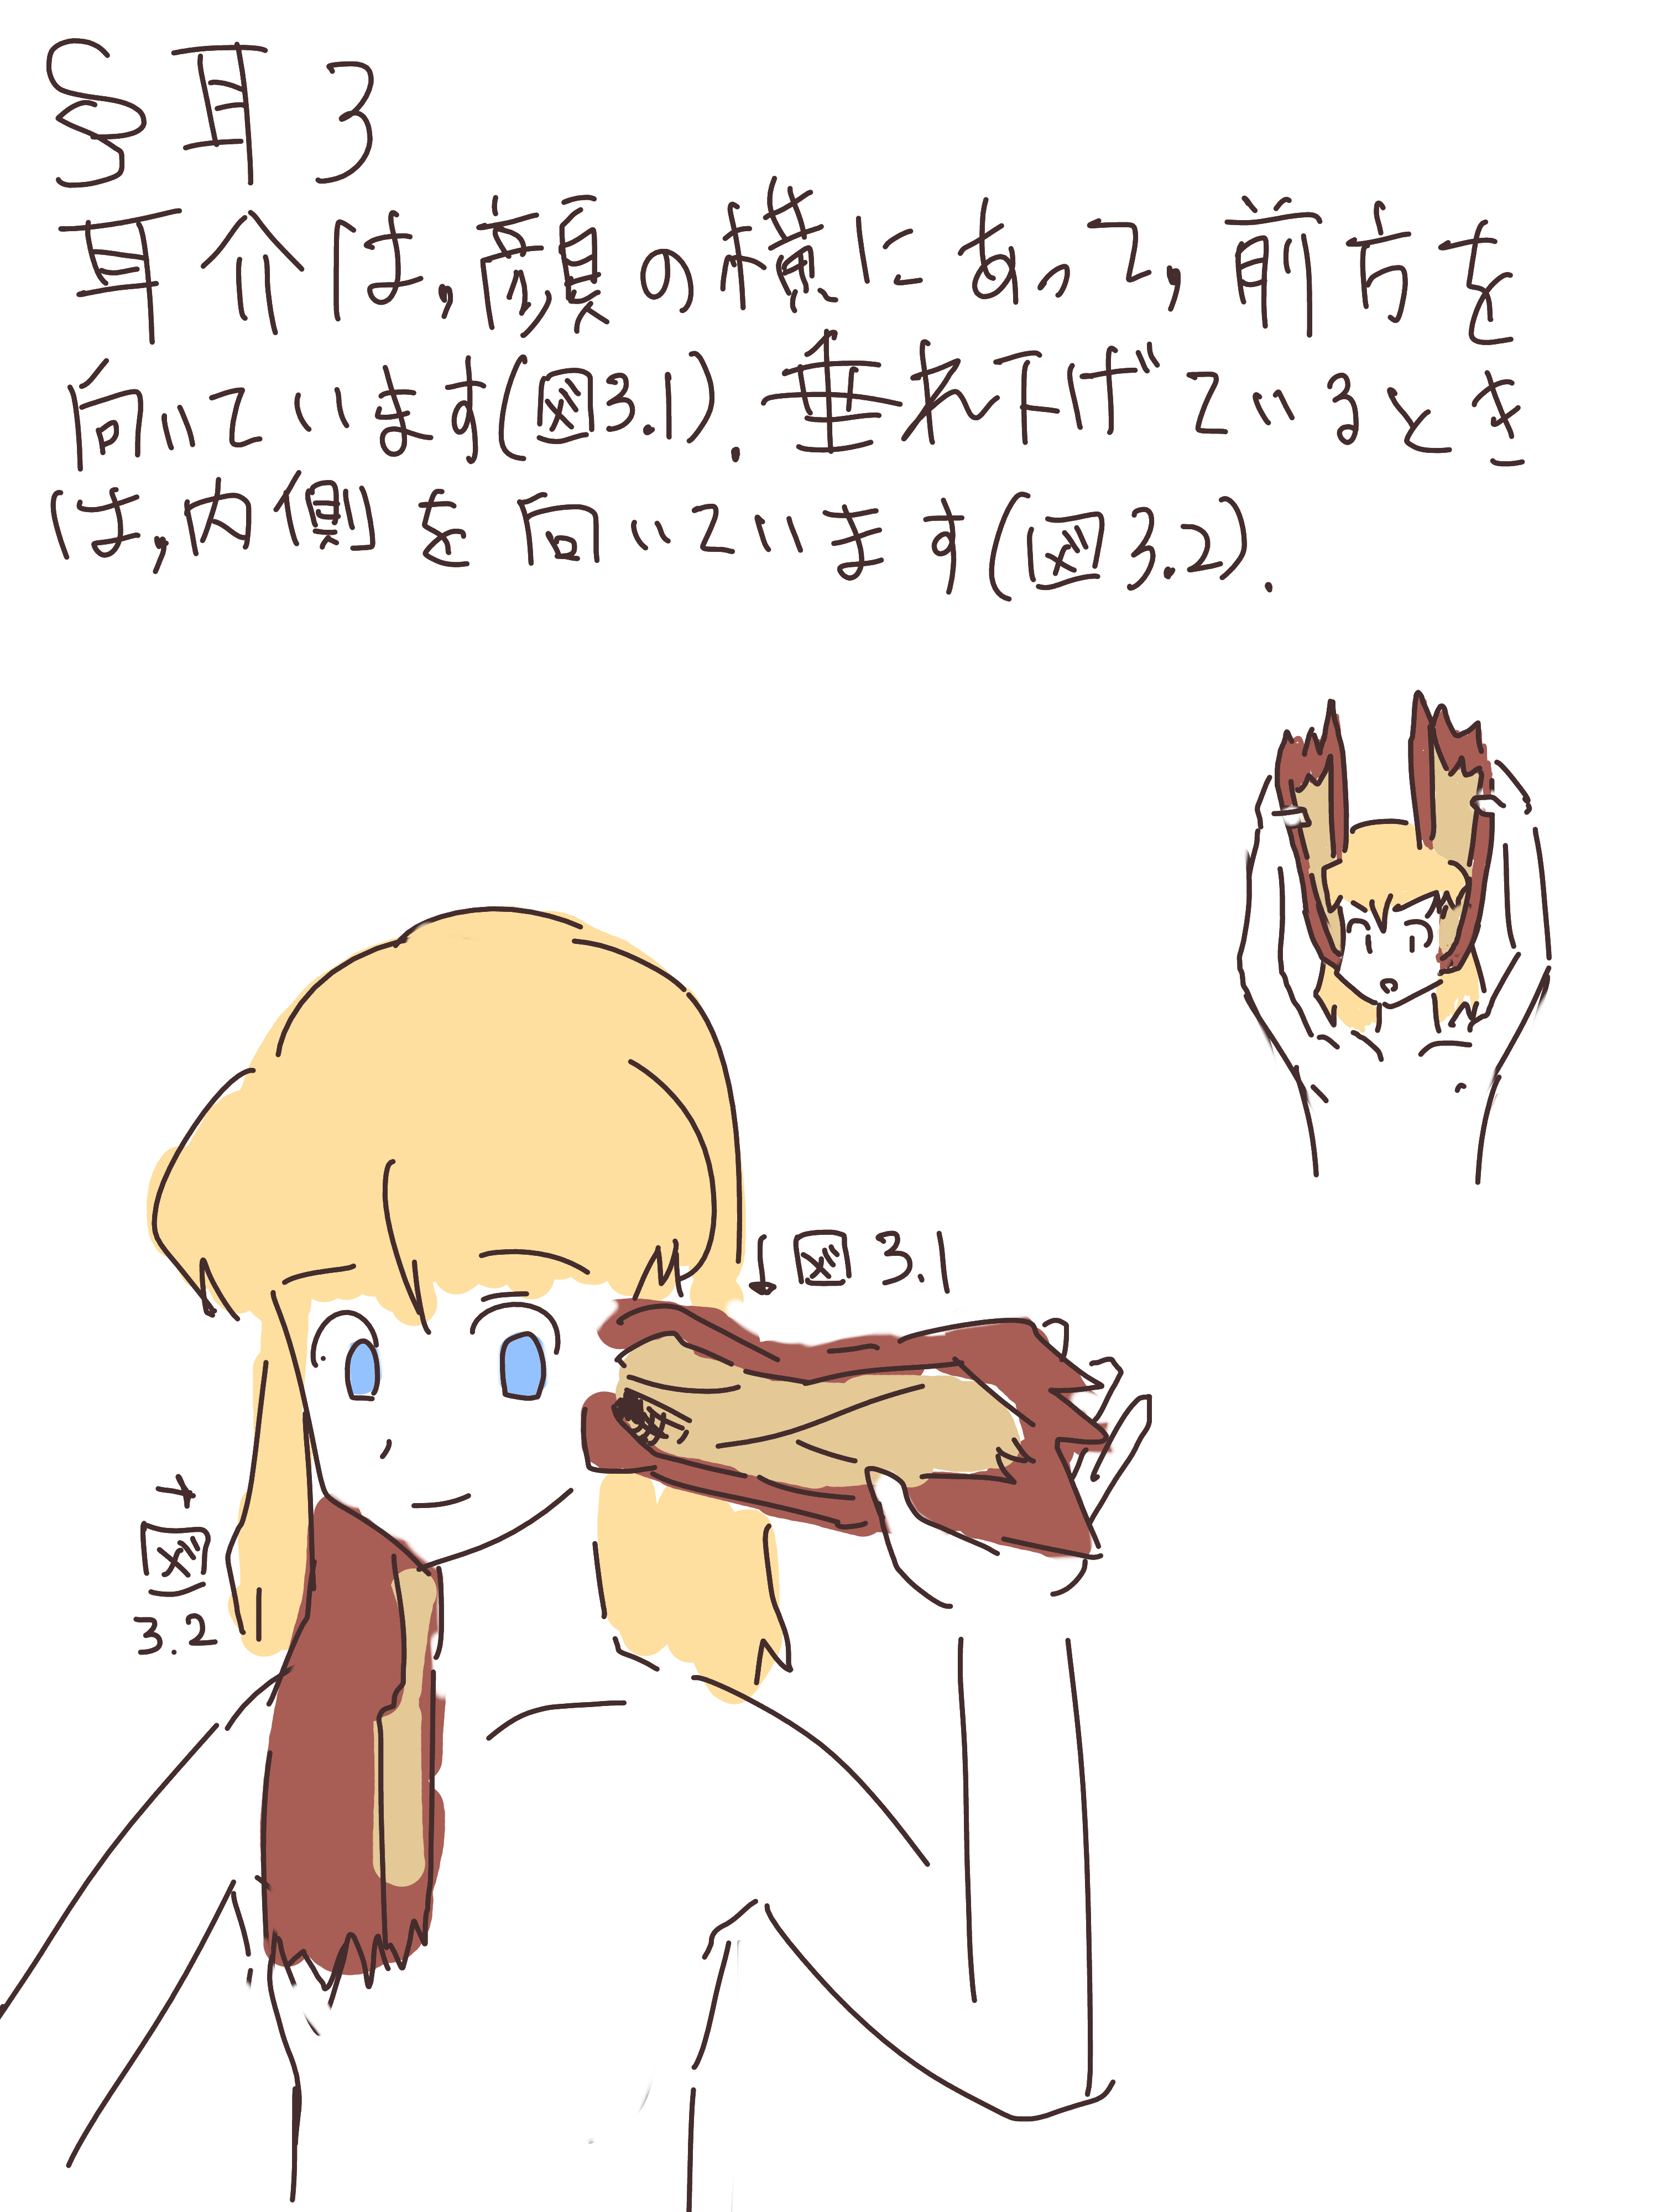 §耳3
耳介は,顔の横にあって,前方を
向いています(図3.1).垂れ下げているとき
は,内側を向いています(図3.2).
↓図3.1
↗図
3.2